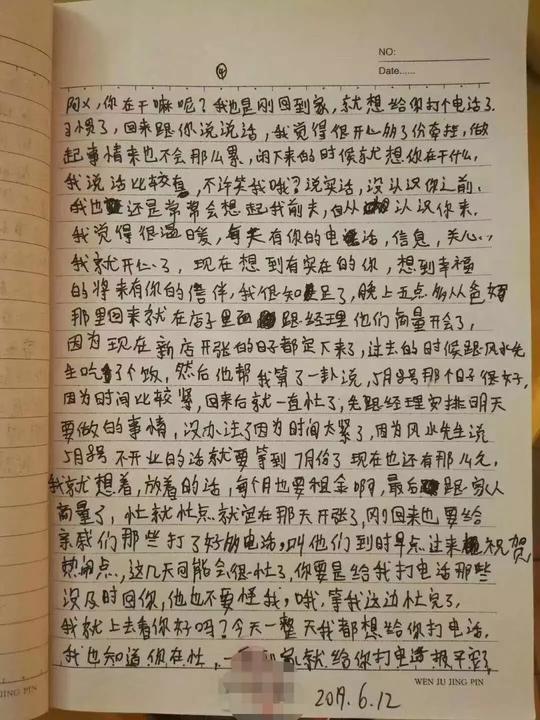 ④
NO:
Date......
阿义,你在干嘛呢?我也是刚回到家,就想给你打个电话了.
习惯了,回来跟你说说话,我觉得很开心的了份牵挂,做
起事情来也不会那么累,闲下来的时候就想你在干什么,
我说话比较直,不许笑我哦?说实话,没认识你之前.
我也还是常常会想起我前夫,自从认识你来.
我觉得很温暖,每天有你的电话,信息,关心..
我就开心了,现在想到有实在的你,想到幸福
的将来有你的陪伴,我很知足了,晚上五点多从爸妈
那里回来就在店子里面跟经理他们商量开会了,
因为现在新店开张的日子都定下来了,过去的时候跟风水先
生吃了个饭,然后他帮我算了一卦说,5月8号那个日子很好,
因为时间比较紧,回来后就一直忙了,先跟经理安排明天
要做的事情,没办法了因为时间太紧了,因为风水先生说
5月8号不开业的话就要等到7月份了现在也还有那么久.
我就想着,放着的话,每个月也要租金啊,最后跟家人
商量了,忙就忙点就定在那天开张了,刚回来也要给
亲戚们那些打了好多电话,叫他们到时早点过来祝贺
热闹点,这几天可能会很忙了,你要是给我打电话那些
没及时回你,他也不要怪我,哦.等我这边忙完了.
我就上去看你好吗?今天一整天我都想给你打电话.
我也知道你在忙,一 家就给你打电话报平安了
JING PIN
WEN JU JING PIN
2019.6.12